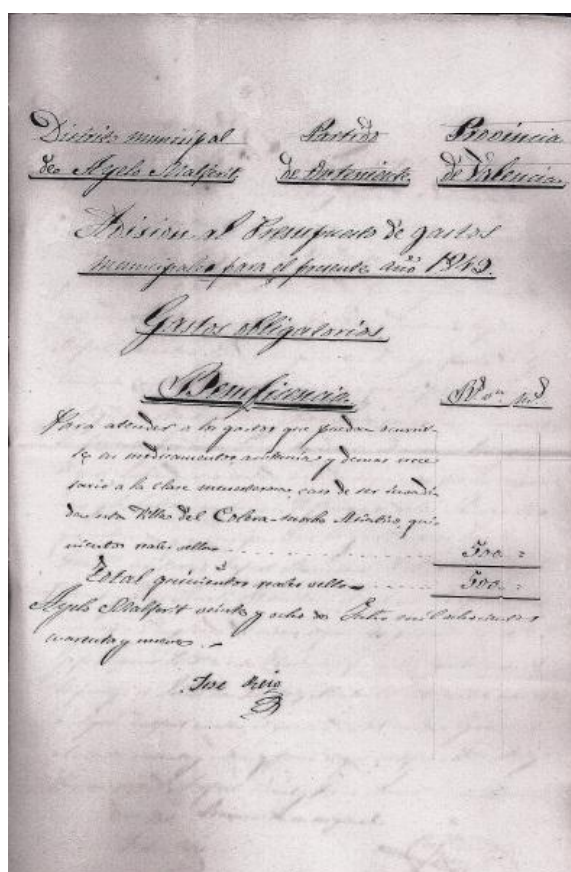 Distrito municipal Partido Provincia
de Ayelo Malferit de Onteniente de Valencia.
Adision al Presupuesto de gastos
municipales para el presente año 1849.
Gastos obligatorios
Beneficencia. Rs. vn. Ms.
Para atender a los gastos que puedan ocurrir
se en medicamentos, asistencia y demas nece
sario a la clase menesterosa, caso de ser invadi
da esta Villa del Colera-morbo Asiatico, qui-
nientos reales vellon 500 =
Total quinientos reales vellon 500 =
Ayelo Malferit veinte y ocho de Julio mil ochocientos
cuarenta y nueve.
Jose